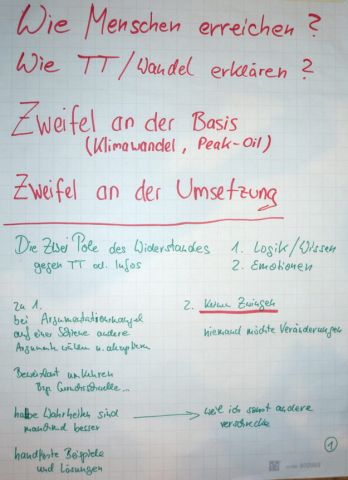 Wie Menschen erreichen?
Wie TT/Wandel erklären?
Zweifel an der Basis
(Klimawandel, Peak-Oil)
Zweifel an der Umsetzung
Die Zwei Pole des Widerstandes
gegen TT od. Infos
1. Logik/Wissen
2. Emotionen
zu 1.
bei Argumentationsmangel
auf einer Schiene andere
Argumente u. akzeptieren
2. Keine Zwingen
niemand möchte Veränderungen
Bsp.
halbe Wahrheiten sind
manchmal besser
weil ich sonst andere
verschrecke
handfeste Beispiele
und Lösungen
1